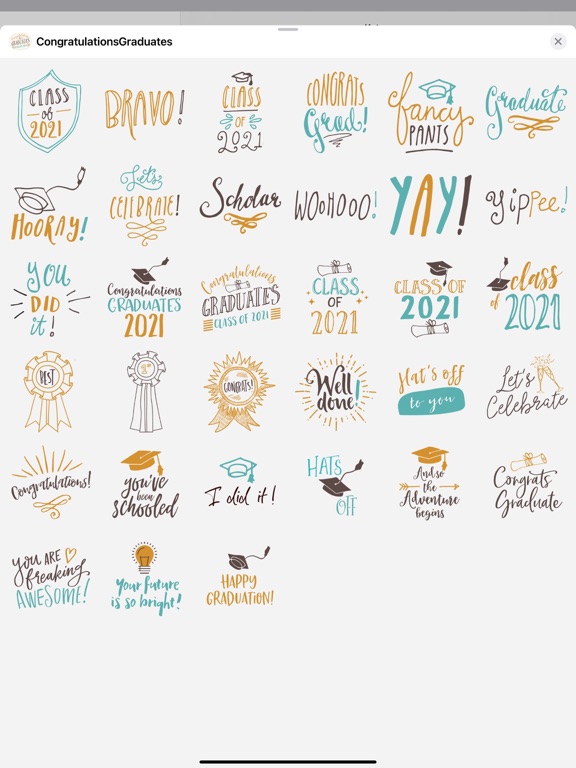 CongratulationsGraduates
CLASS
of
2021
BRAVO!
CLASS
OF
2021
CONGRATS
Grad!
fancy
PANTS
Graduate
HOORAY!
Let's
CELEBRATE!
Scholar
WOOHOOO!
YAY!
Yippee!
YOU
DID
it!
Congratulations
GRADUATES
2021
Congratulations
GRADUATES
CLASS OF 2021
CLASS
OF
2021
CLASS OF
2021
class
of 2021
BEST
CONGRATS!
Well
done!
Hat's off
to you
Let's
Celebrate
Congratulations!
you've
been
schooled
I did it!
HATS
OFF
And so
the
Adventure
begins
Congrats
Graduate
YOU ARE
freaking
AWESOME!
Your future
is so bright!
HAPPY
GRADUATION!